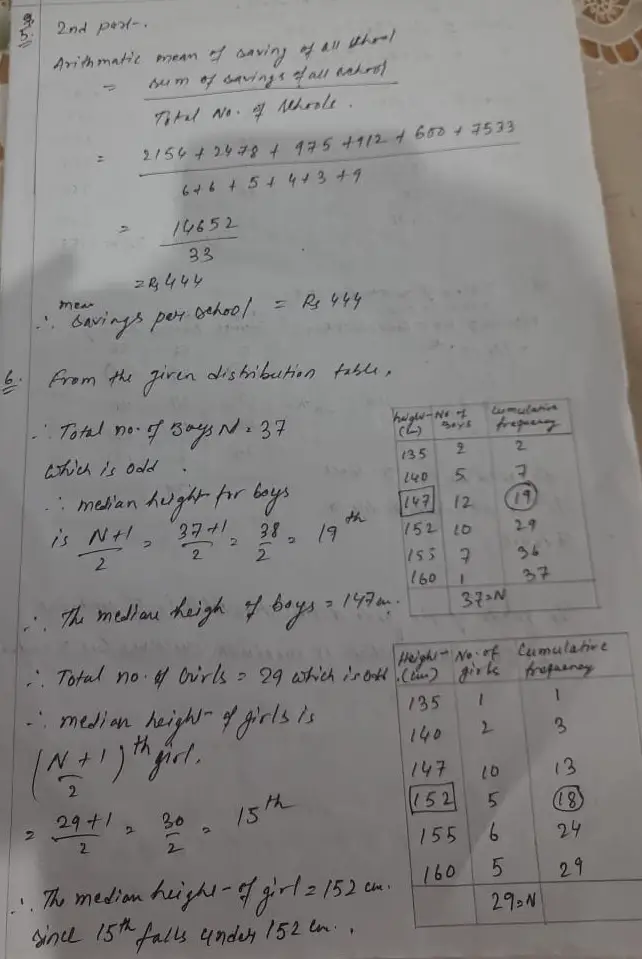 5. 2nd part-.
Arithmatic mean of saving of all school
= sum of savings of all school
Total No. of schools.
= 2154 + 2478 + 975 + 912 + 600 + 7533
6+6 + 5 + 4+3 +9
= 14652
33
= Rs 444
mean
∴ savings per school = Rs 444
6. From the given distribution table,
∴ Total no. of Boys N = 37
which is odd.
∴ median height for boys
is N+1/2 = 37+1/2 = 38/2 = 19th
∴ The median heigh of boys = 147 cm.
height (cm) No of Boys Cumulative frequency
135 2 2
140 5 7
147 12 19
152 10 29
155 7 36
160 1 37
37=N
∴ Total no. of Girls = 29 which is odd
∴ median height of girls is
(N+1/2)th girl.
= 29+1/2 = 30/2 = 15th
∴ The median height of girl = 152 cm.
since 15th falls under 152 cm.,
Height (cm) No. of girls Cumulative frequency
135 1 1
140 2 3
147 10 13
152 5 18
155 6 24
160 5 29
29=N